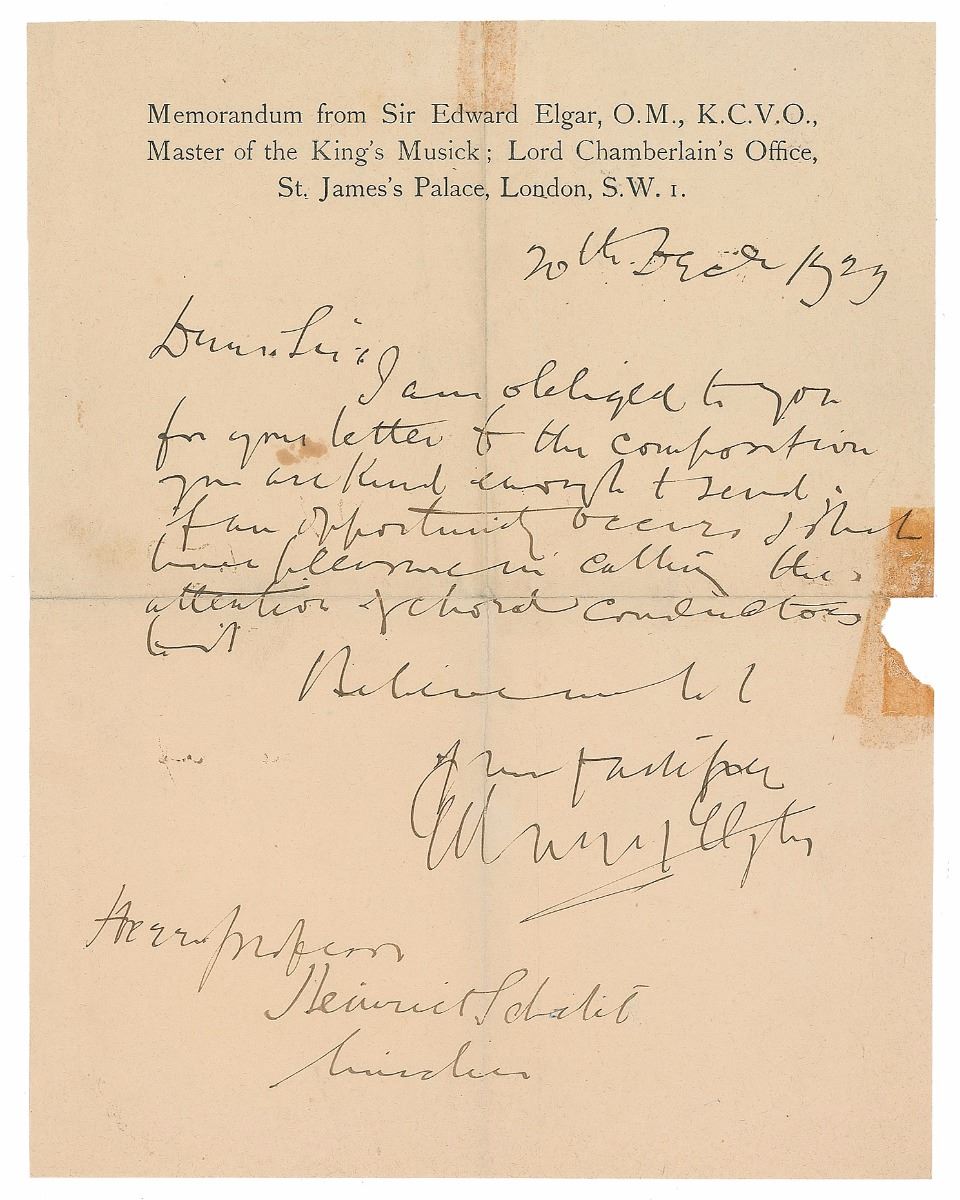 Memorandum from Sir Edward Elgar, O.M., K.C.V.O.,
Master of the King's Musick; Lord Chamberlain's Office,
St. James's Palace, London, S.W. 1.
20th Decr 1929
Dear Sir:
I am obliged to you
for your letter & the composition
you are kind enough to send:
if an opportunity occurs I shall
have pleasure in calling the
attention of choral conductors
to it
Believe me to be
Yours faithfully
Edward Elgar
Herr Professor
Heinrich Schalit
München